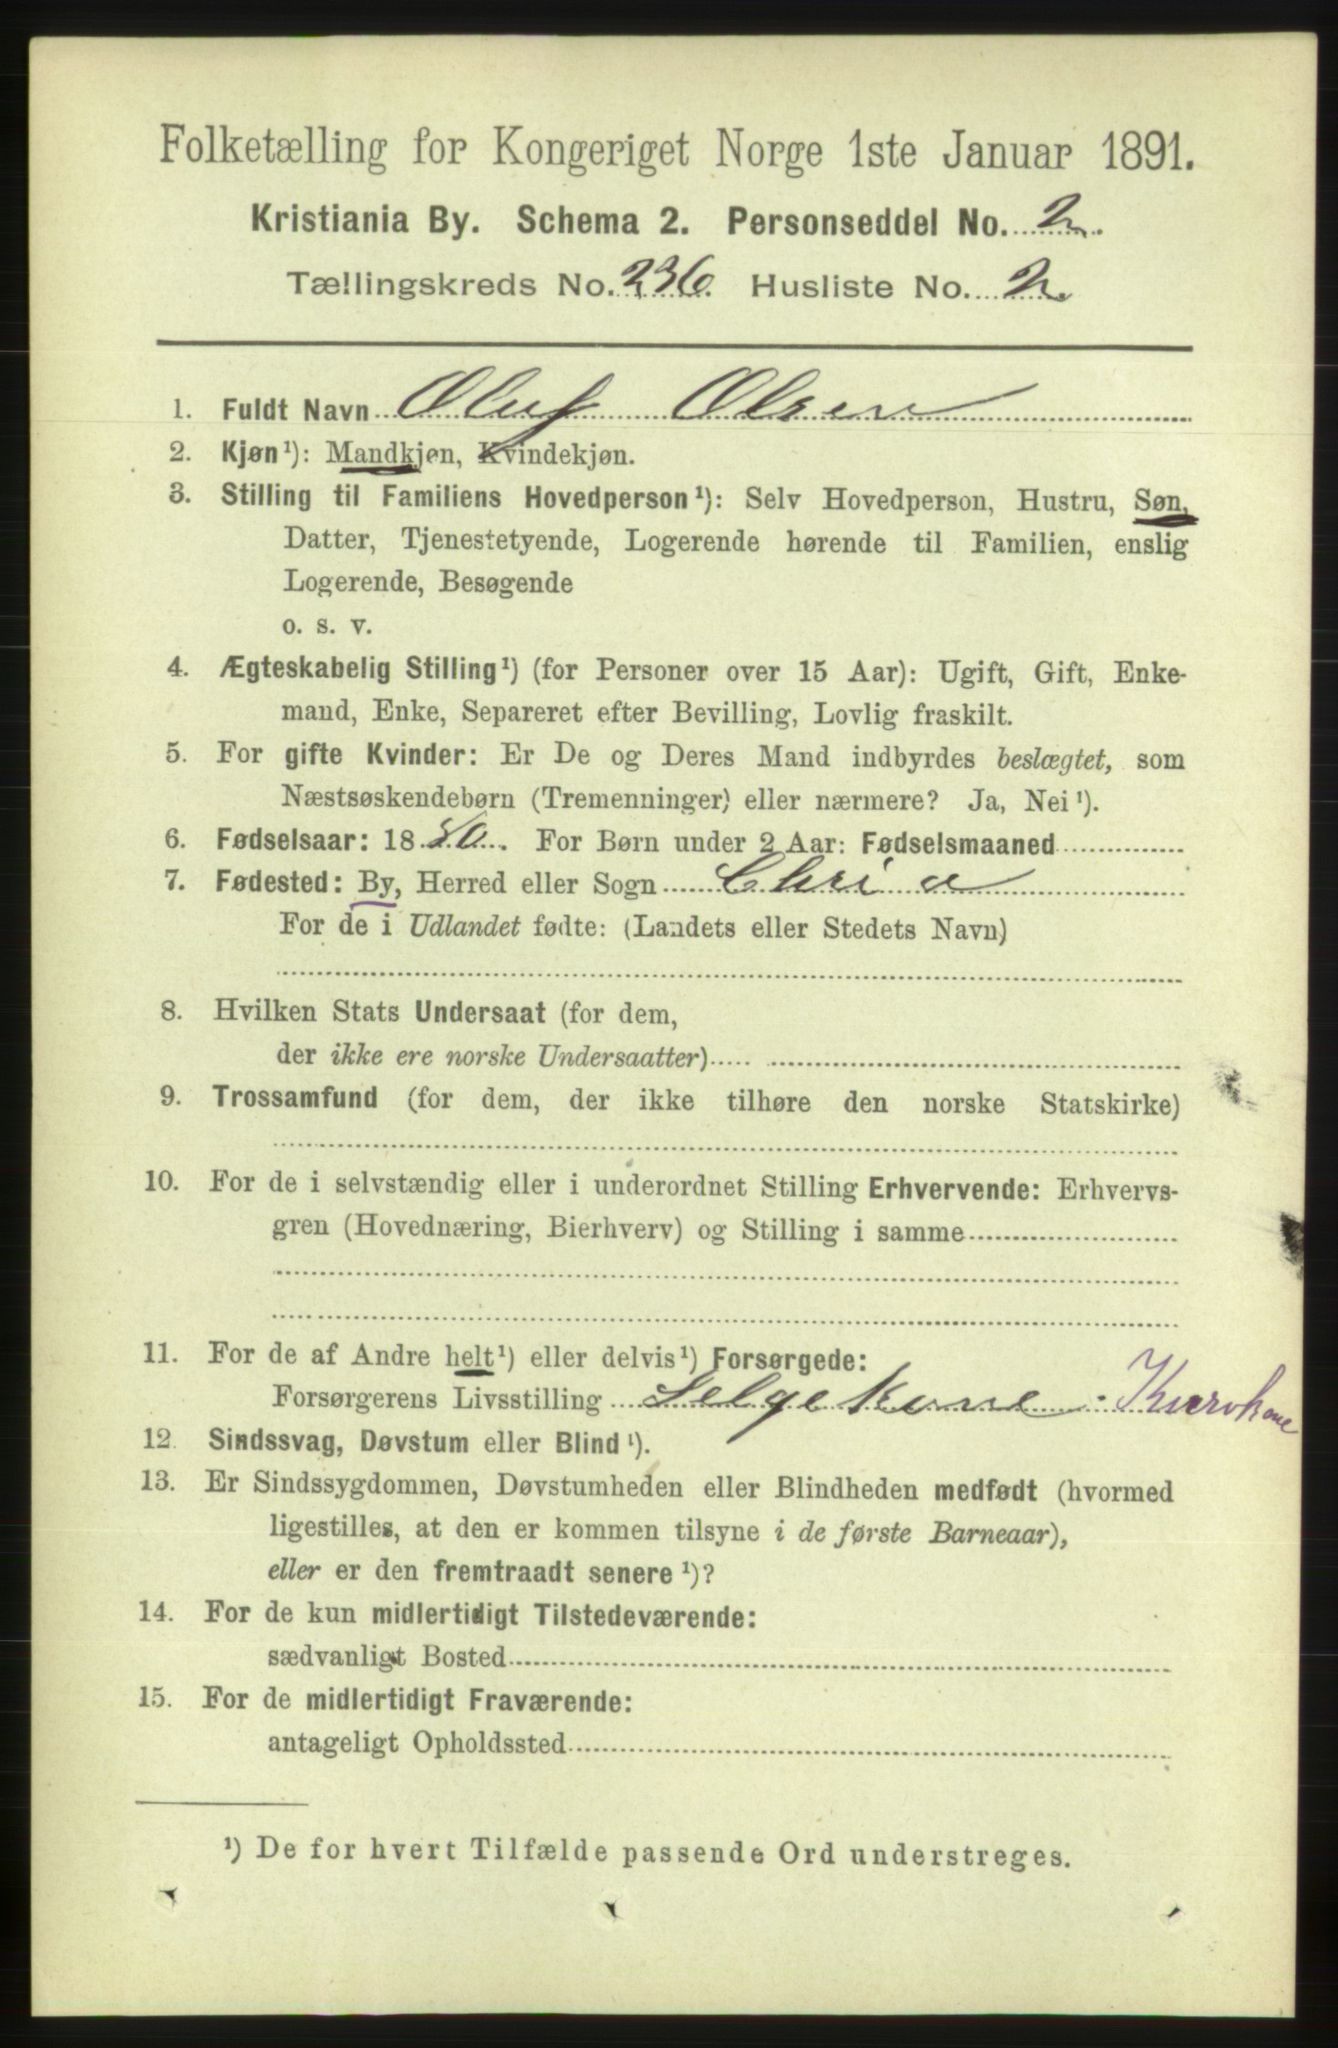 Folketælling for Kongeriget Norge 1ste Januar 1891.
Kristiania By. Schema 2. Personseddel No. 2.
Tællingskreds No. 236. Husliste No. 2.
1. Fuldt Navn Oluf Olsen
2. Kjøn¹): Mandkjøn, Kvindekjøn.
3. Stilling til Familiens Hovedperson¹): Selv Hovedperson, Hustru, Søn,
Datter, Tjenestetyende, Logerende hørende til Familien, enslig
Logerende, Besøgende
o. s. v.
4. Ægteskabelig Stilling¹) (for Personer over 15 Aar): Ugift, Gift, Enke-
mand, Enke, Separeret efter Bevilling, Lovlig fraskilt.
5. For gifte Kvinder: Er De og Deres Mand indbyrdes beslægtet, som
Næstsøskendebørn (Tremenninger) eller nærmere? Ja, Nei¹).
6. Fødselsaar: 1880. For Børn under 2 Aar: Fødselsmaaned
7. Fødested: By, Herred eller Sogn Chria
For de i Udlandet fødte: (Landets eller Stedets Navn)
8. Hvilken Stats Undersaat (for dem,
der ikke ere norske Undersaatter)
9. Trossamfund (for dem, der ikke tilhøre den norske Statskirke)
10. For de i selvstændig eller i underordnet Stilling Erhvervende: Erhvervs-
gren (Hovednæring, Bierhverv) og Stilling i samme
11. For de af Andre helt¹) eller delvis¹) Forsørgede:
Forsørgerens Livsstilling Selgekone - Kurvkone
12. Sindssvag, Døvstum eller Blind¹).
13. Er Sindssygdommen, Døvstumheden eller Blindheden medfødt (hvormed
ligestilles, at den er kommen tilsyne i de første Barneaar),
eller er den fremtraadt senere¹)?
14. For de kun midlertidigt Tilstedeværende:
sædvanligt Bosted
15. For de midlertidigt Fraværende:
antageligt Opholdssted
¹) De for hvert Tilfælde passende Ord understreges.